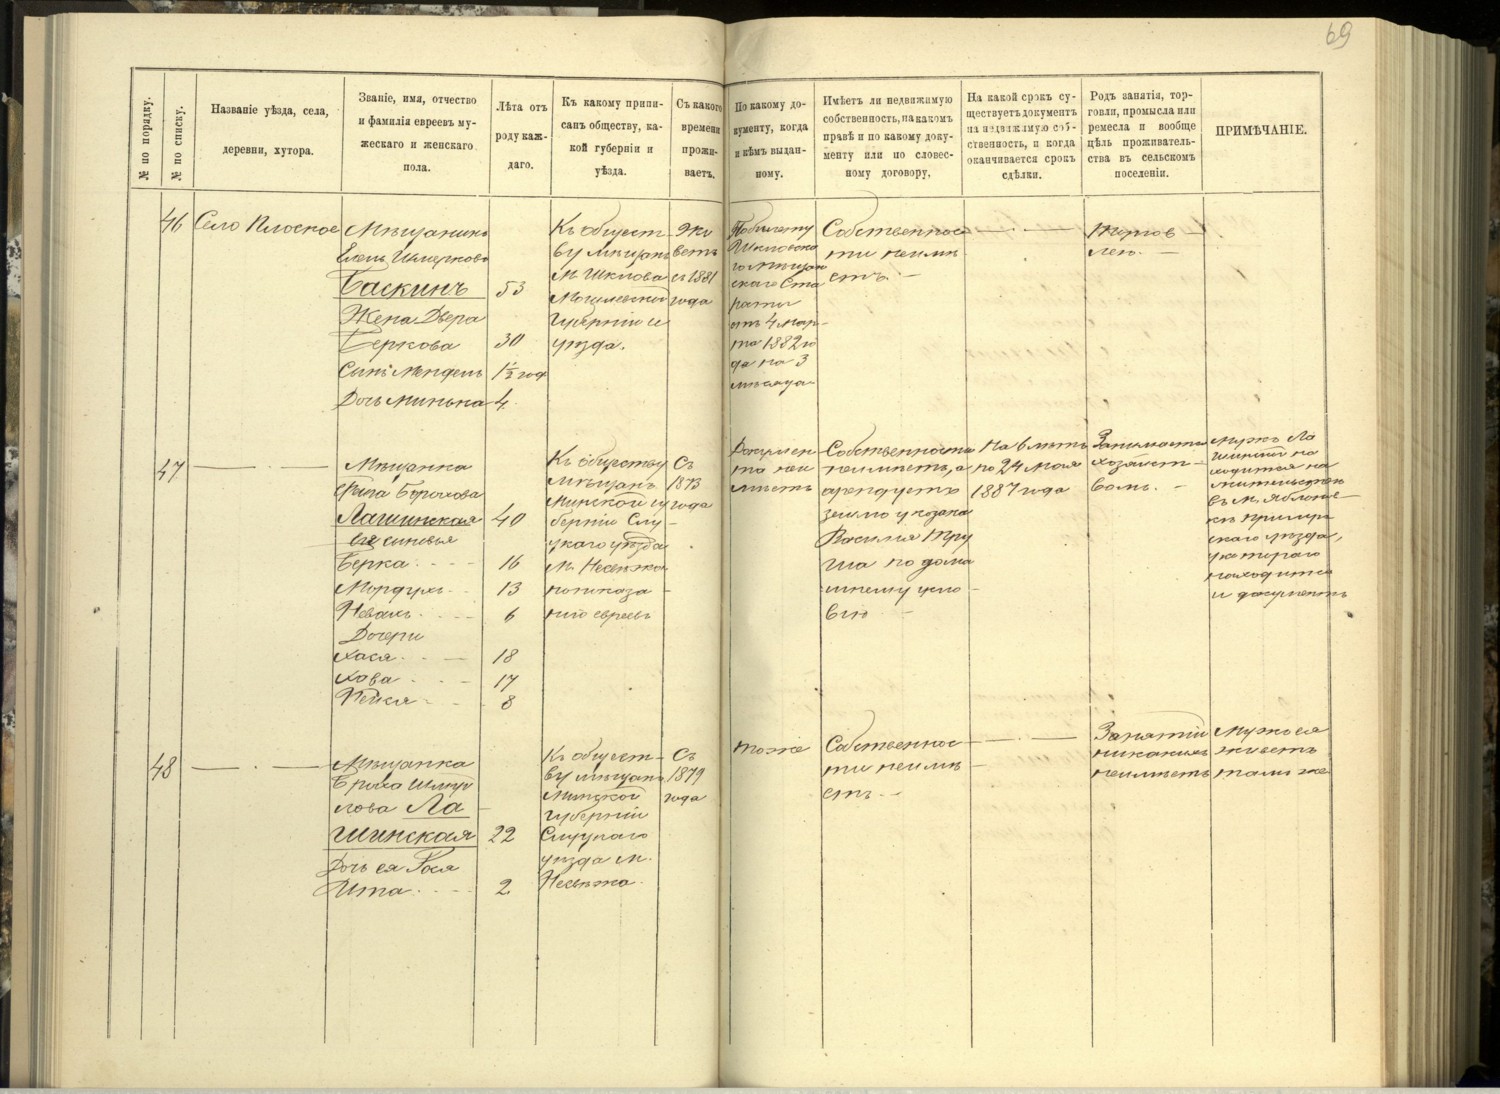 69
№ по порядку.
№ по списку.
Названіе уѣзда, села,
деревни, хутора.
Званіе, имя, отчество
и фамилія евреевъ му-
жескаго и женскаго
пола.
Лѣта отъ
роду каж-
даго.
Къ какому припи-
санъ обществу, ка-
кой губерніи и
уѣзда.
Съ какого
времени
прожи-
ваетъ.
По какому до-
кументу, когда
и кѣмъ выдан-
ному.
Имѣетъ ли недвижимую
собственность, на какомъ
правѣ и по какому доку-
менту или по словес-
ному договору,
На какой срокъ су-
ществуетъ документъ
на недвижимую соб-
ственность, и когда
оканчивается срокъ
сдѣлки.
Родъ занятія, тор-
говли, промысла или
ремесла и вообще
цѣль проживатель-
ства въ сельскомъ
поселеніи.
ПРИМѢЧАНІЕ.
46
Село Плоское
Мѣщанинъ
Баскинъ 53
Жена Двера
Беркова 30
Сынъ Мендель 1½ год
Дочь Минька 4
Къ общест-
ву мѣщанъ
м. Шклова
Могилевской
губерніи и
уѣзда.
живетъ
съ 1881
года
По билету
Шкловска
го мѣщан
скаго Ста
росты
отъ 4 мар-
та 1882 го
да на 3
мѣсяца
Собственнос
ти неимѣ
етъ. —
— · — · —
Торгов
лею. —
47
— · —
Мѣщанка
Борохова
Лашинская 40
Ея сыновья
Берка 16
Мордухъ 13
6
Дочери
Хася 18
Хава 17
Фейга 8
Къ обществу
мѣщанъ
Минской гу
берніи Слу-
цкаго уѣзда
м. Несвѣжа
по показа-
нію евреевъ
Съ
1873
года
Докумен
та неи
мѣетъ
Собственности
неимѣетъ, а
арендуетъ
землю у козака
Василія Тру
ша по дома
шнему усло
вію —
На 6 лѣтъ
по 24 мая
1887 года
Занимается
хозяйст-
вомъ. —
Мужъ Ла
шинской на
ходится на
жительствѣ
въ м. Яблонов-
кѣ Прилук
скаго уѣзда,
у котораго
находится
и документъ
48
— · —
Мѣщанка
Броха Шмуй
лова Ла
шинская 22
Дочь ея Рося
Ита 2
Къ общест-
ву мѣщанъ
Минской
губерніи
Слуцкаго
уѣзда м.
Несвѣжа
Съ
1879
года
тоже
Собственнос
ти неимѣ
етъ —
— · —
Занятій
никакихъ
неимѣетъ
Мужъ ея
живетъ
тамъ же